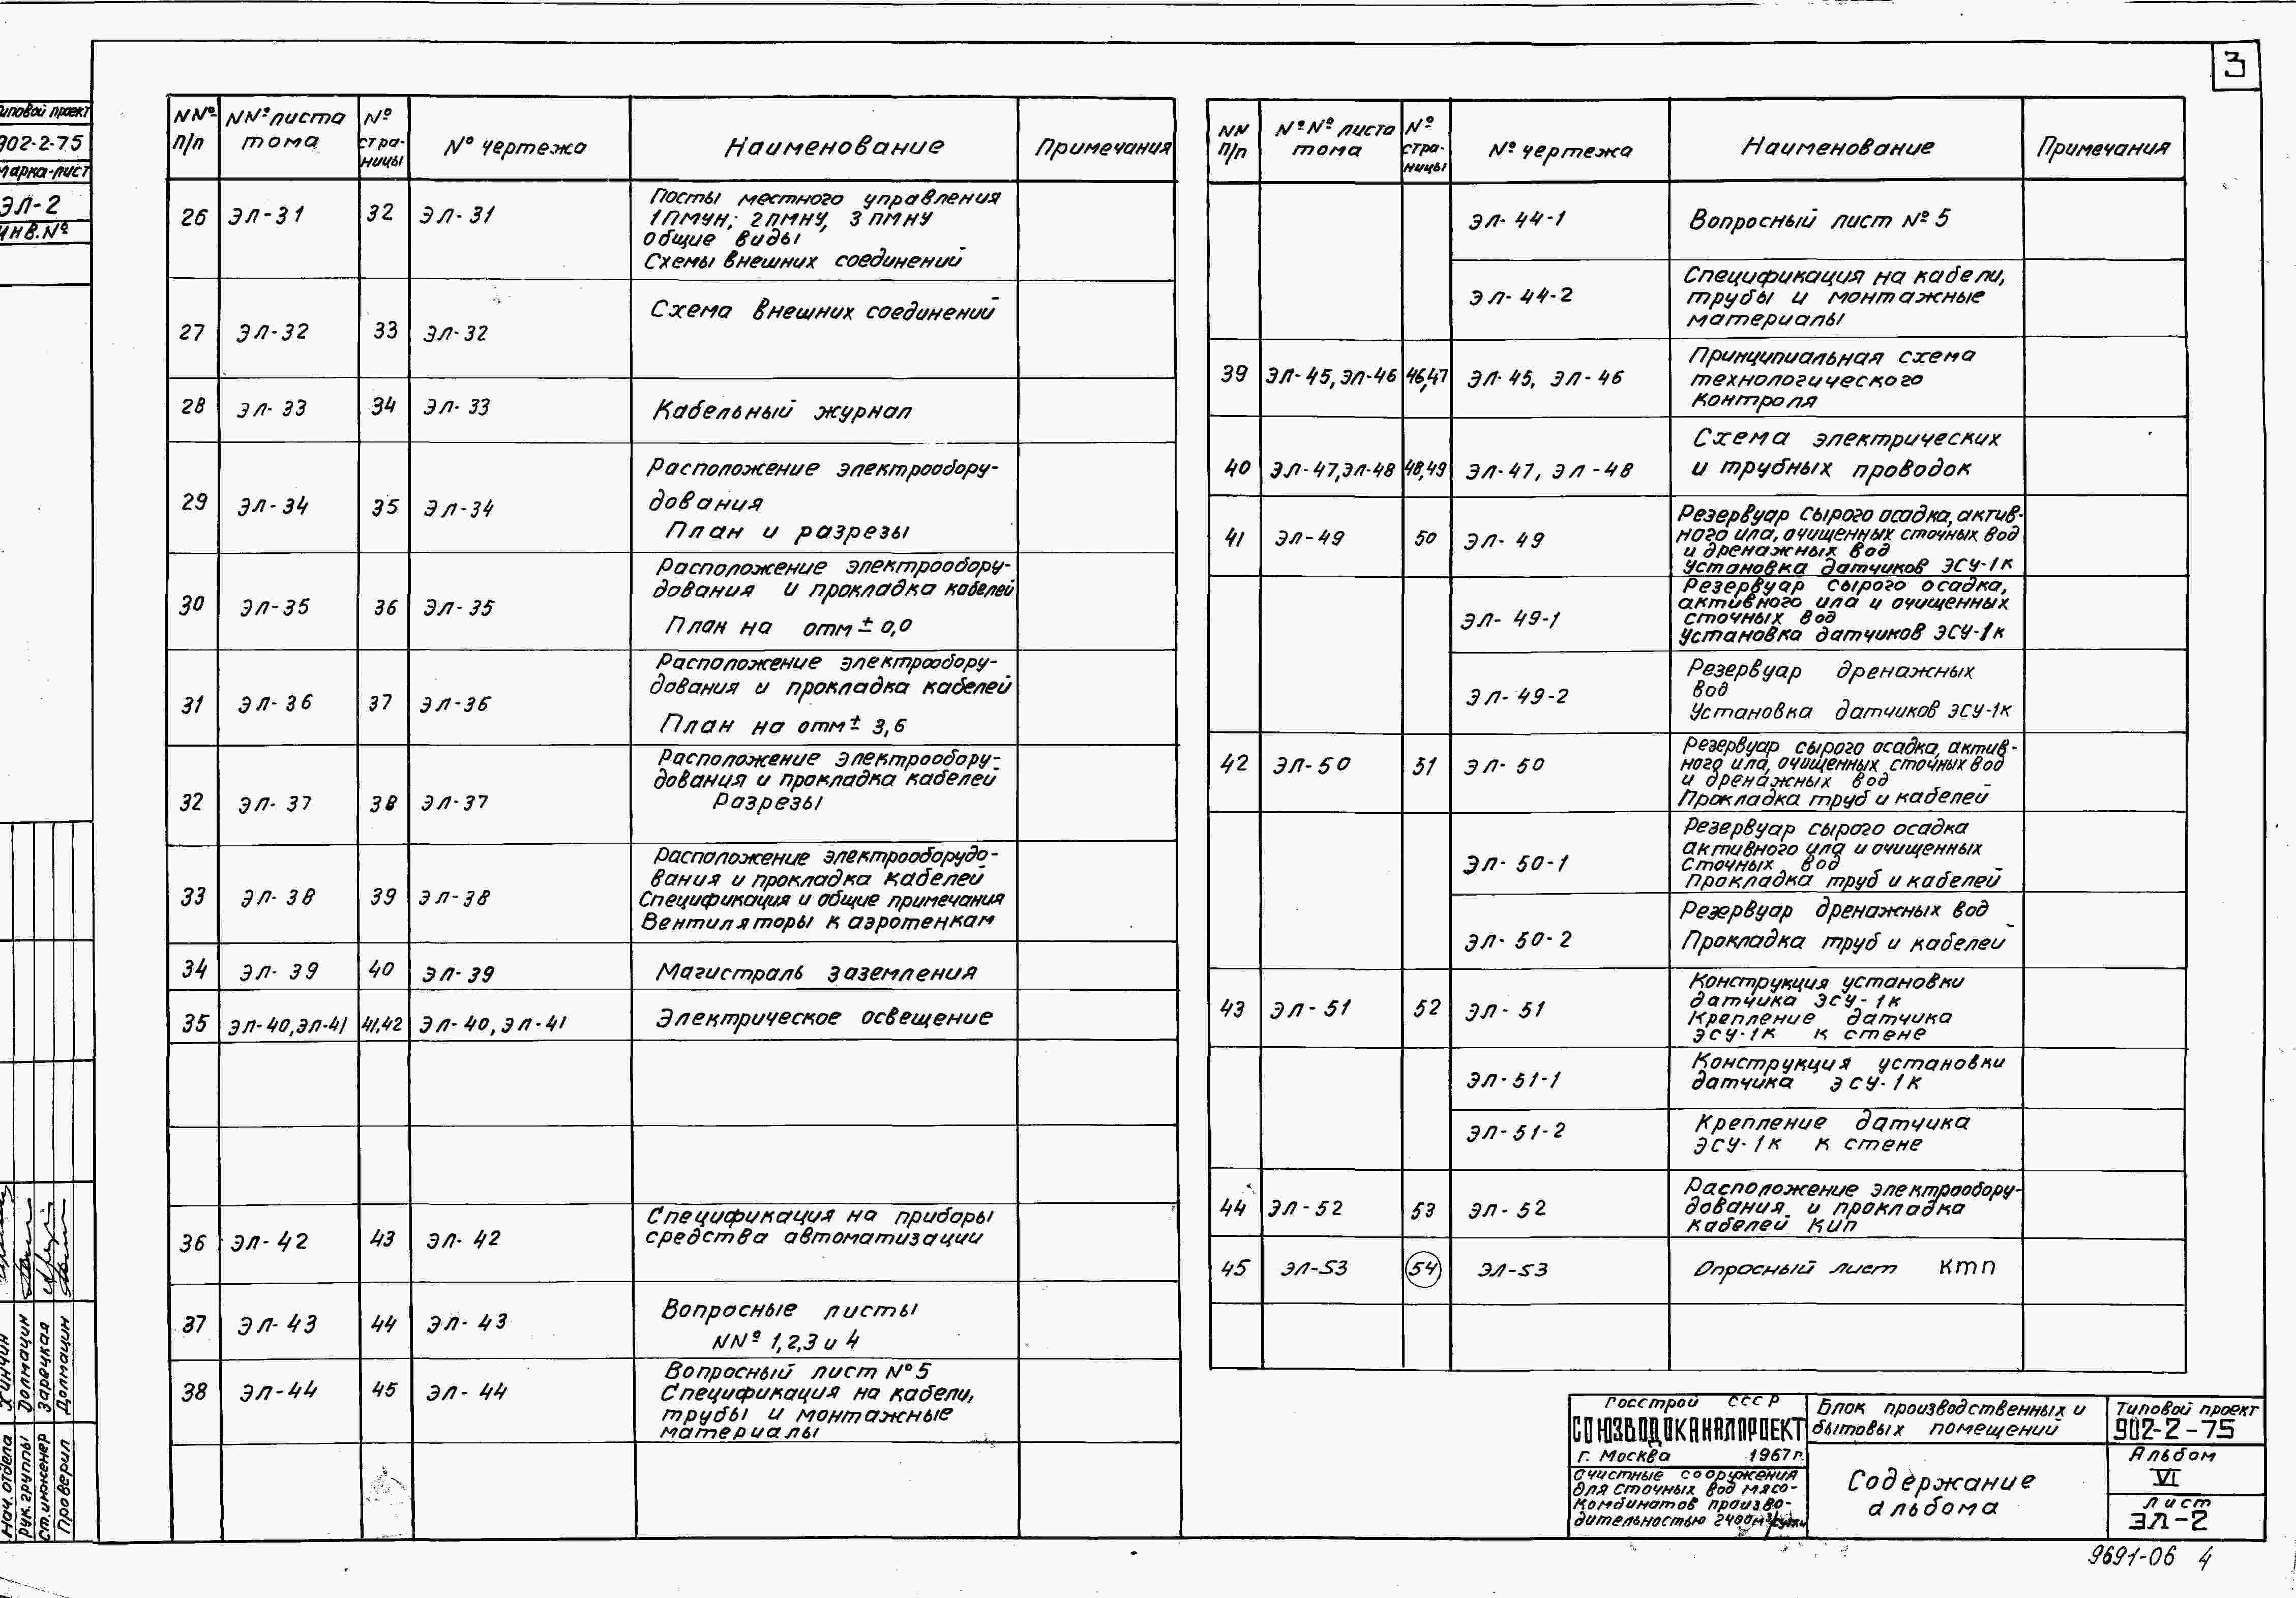 3
Типовой проект
902-2-75
Марка-лист
ЭЛ-2
Инв.№
NNº п/п NNº листа тома Nº страницы Nº чертежа Наименование Примечания
26 ЭЛ-31 32 ЭЛ-31 Посты местного управления
1ПМУН; 2ПМНУ, 3 ПМНУ
общие виды
Схемы внешних соединений
27 ЭЛ-32 33 ЭЛ-32 Схема внешних соединений
28 ЭЛ-33 34 ЭЛ-33 Кабельный журнал
29 ЭЛ-34 35 ЭЛ-34 Расположение электрообору-
дования
План и разрезы
30 ЭЛ-35 36 ЭЛ-35 Расположение электрообору-
дования и прокладка кабелей
План на отм ± 0,0
31 ЭЛ-36 37 ЭЛ-36 Расположение электрообору-
дования и прокладка кабелей
План на отм ± 3,6
32 ЭЛ-37 38 ЭЛ-37 Расположение электрообору-
дования и прокладка кабелей
Разрезы
33 ЭЛ-38 39 ЭЛ-38 Расположение электрооборудо-
вания и прокладка кабелей
Спецификация и общие примечания
Вентиляторы к аэротенкам
34 ЭЛ-39 40 ЭЛ-39 Магистраль заземления
35 ЭЛ-40,ЭЛ-41 41,42 ЭЛ-40, ЭЛ-41 Электрическое освещение
36 ЭЛ-42 43 ЭЛ-42 Спецификация на приборы
средства автоматизации
37 ЭЛ-43 44 ЭЛ-43 Вопросные листы
NNº 1,2,3 и 4
38 ЭЛ-44 45 ЭЛ-44 Вопросный лист Nº5
Спецификация на кабели,
трубы и монтажные
материалы
NN п/п Nº Nº листа тома Nº страницы Nº чертежа Наименование Примечания
ЭЛ-44-1 Вопросный лист Nº 5
ЭЛ-44-2 Спецификация на кабели,
трубы и монтажные
материалы
39 ЭЛ-45, ЭЛ-46 46,47 ЭЛ-45, ЭЛ-46 Принципиальная схема
технологического
контроля
40 ЭЛ-47,ЭЛ-48 48,49 ЭЛ-47, ЭЛ-48 Схема электрических
и трубных проводок
41 ЭЛ-49 50 ЭЛ-49 Резервуар сырого осадка, актив-
ного ила, очищенных сточных вод
и дренажных вод
Установка датчиков ЭСУ-1К
ЭЛ-49-1 Резервуар сырого осадка,
активного ила и очищенных
сточных вод
Установка датчиков ЭСУ-1к
ЭЛ-49-2 Резервуар дренажных
вод
Установка датчиков ЭСУ-1к
42 ЭЛ-50 51 ЭЛ-50 Резервуар сырого осадка, актив-
ного ила, очищенных сточных вод
и дренажных вод
Прокладка труб и кабелей
ЭЛ-50-1 Резервуар сырого осадка
активного ила и очищенных
сточных вод
Прокладка труб и кабелей
ЭЛ-50-2 Резервуар дренажных вод
Прокладка труб и кабелей
43 ЭЛ-51 52 ЭЛ-51 Конструкция установки
датчика ЭСУ-1к
Крепление датчика
ЭСУ-1К к стене
ЭЛ-51-1 Конструкция установки
датчика ЭСУ-1К
ЭЛ-51-2 Крепление датчика
ЭСУ-1К к стене
44 ЭЛ-52 53 ЭЛ-52 Расположение электрообору-
дования и прокладка
кабелей КИП
45 ЭЛ-53 54 ЭЛ-53 Опросный лист КТП
Нач. отдела
Рук.группы Долмацин
Ст.инженер Зарецкая
Проверил Долмацин
Госстрой СССР
СОЮЗВОДОКАНАЛПРОЕКТ
г. Москва 1967г.
Очистные сооружения
для сточных вод мясо-
комбинатов произво-
дительностью 2400м³/сутки
Блок производственных и
бытовых помещений
Содержание
альбома
Типовой проект
902-2-75
Альбом
VI
Лист
ЭЛ-2
9691-06 4